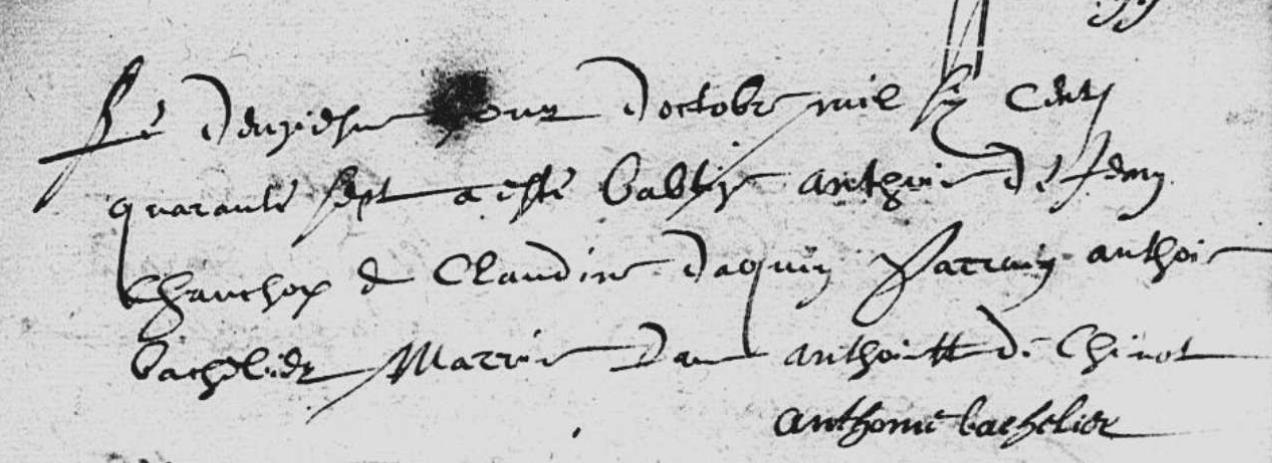 Le deuxiesme jour d'octobre mil six cents
quarante sept a esté babtise anthoine de Remy
Chanchox & Claudine daquin Parrin anthoine
bachelier Marrine dame anthoinette de Chinot
anthoine bachelier